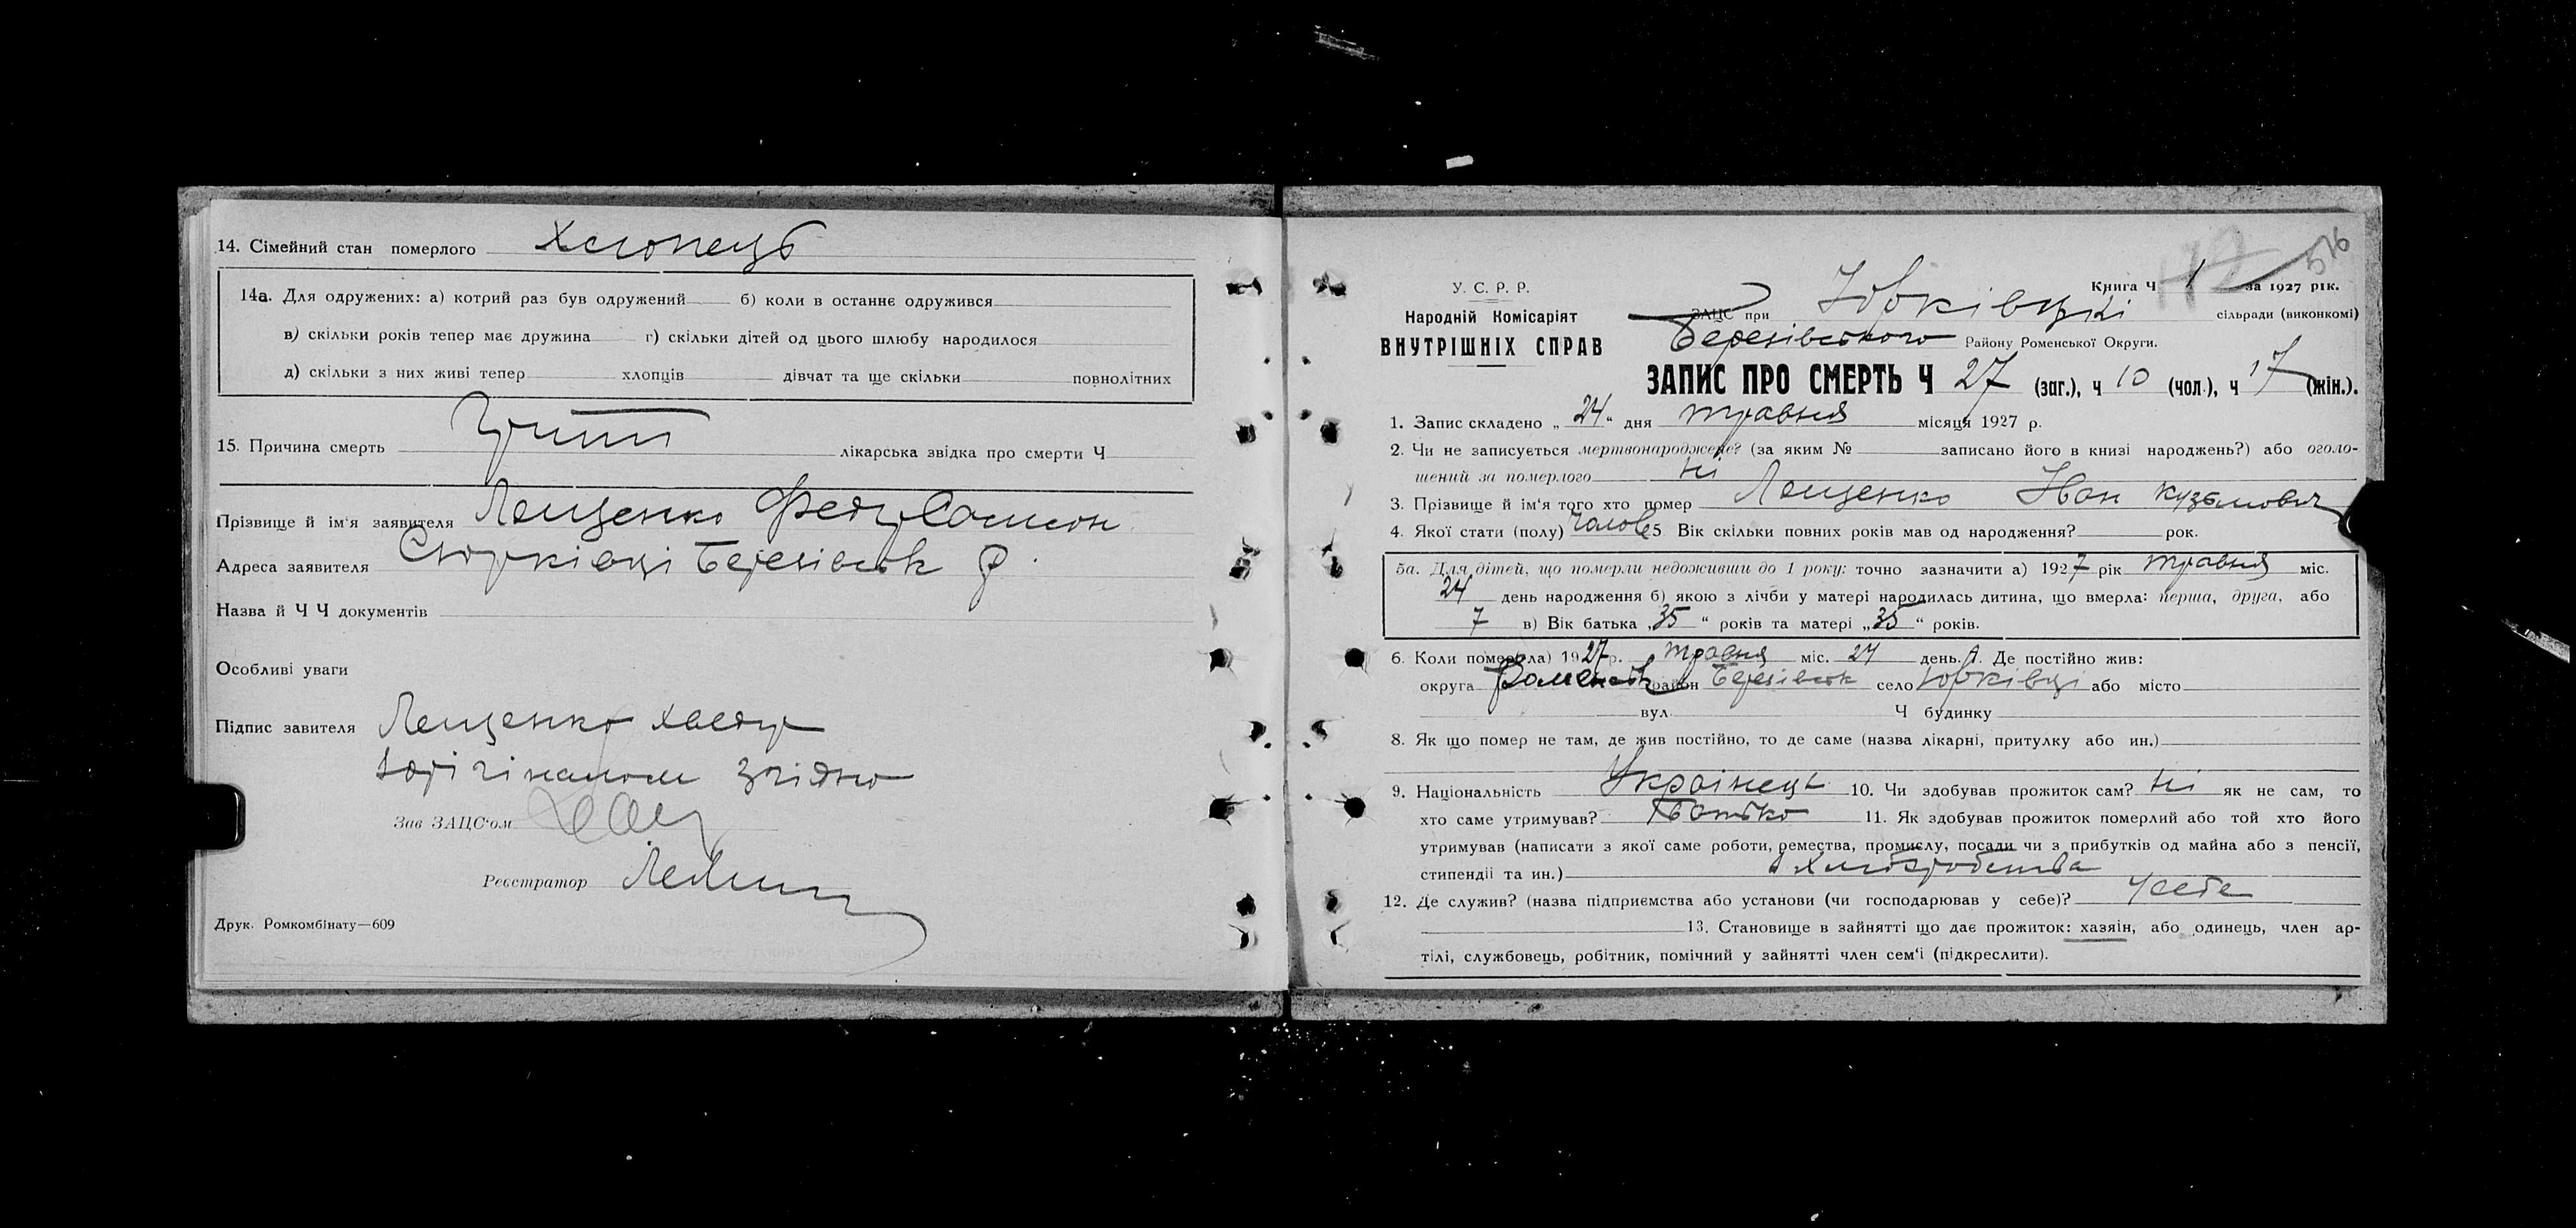 14. Сімейний стан померлого Хлопець
14а. Для одружених: а) котрий раз був одружений б) коли в останнє одружився
в) скільки років тепер має дружина г) скільки дітей од цього шлюбу народилося
д) скільки з них живі тепер хлопців дівчат та ще скільки повнолітних
15. Причина смерть Грипп лікарська звідка про смерти Ч
Прізвище й ім'я заявителя Лещенко Федір
Адреса заявителя Березівськ р
Назва й Ч Ч документів
Особливі уваги
Підпис завителя Лещенко Хведір
З орігіналом згідно
Зав ЗАЦС'ом
Реєстратор
Друк. Ромкомбінату—609
576
У. С. Р. Р.
Народній Комісаріят
ВНУТРІШНІХ СПРАВ
Книга Ч 1 за 1927 рік.
ЗАЦС при Юрківці сільради (виконкомі)
Березівського Району Роменської Округи.
ЗАПИС ПРО СМЕРТЬ Ч 27 (заг.), ч 10 (чол.), ч 17 (жін.).
1. Запис складено „ 24 " дня травня місяця 1927 р.
2. Чи не записується мертвонароджене? (за яким № записано його в книзі народжень?) або оголо-
шений за померлого ні
3. Прізвище й ім'я того хто помер Лещенко Іван Кузьмович
4. Якої стати (полу) чолов 5 Вік скільки повних років мав од народження? рок.
5а. Для дітей, що померли недоживши до 1 року: точно зазначити а) 1927 рік травня міс.
24 день народження б) якою з лічби у матері народилась дитина, що вмерла: перша, друга, або
7 в) Вік батька „35" років та матері „35" років.
6. Коли помер(ла) 1927 р. травня міс. 24 день. 7. Де постійно жив:
округа Роменськ район Березівськ село Юрківці або місто
вул. Ч будинку
8. Як що помер не там, де жив постійно, то де саме (назва лікарні, притулку або ин.)
9. Національність Українець 10. Чи здобував прожиток сам? ні як не сам, то
хто саме утримував? Батько 11. Як здобував прожиток померлий або той хто його
утримував (написати з якої саме роботи, ремества, промислу, посади чи з прибутків од майна або з пенсії,
стипендії та ин.) з хліборобства
12. Де служив? (назва підприємства або установи (чи господарював у себе)? У себе
13. Становище в зайнятті що дає прожиток: хазяїн, або одинець, член ар-
тілі, службовець, робітник, помічний у зайнятті член сем'ї (підкреслити).